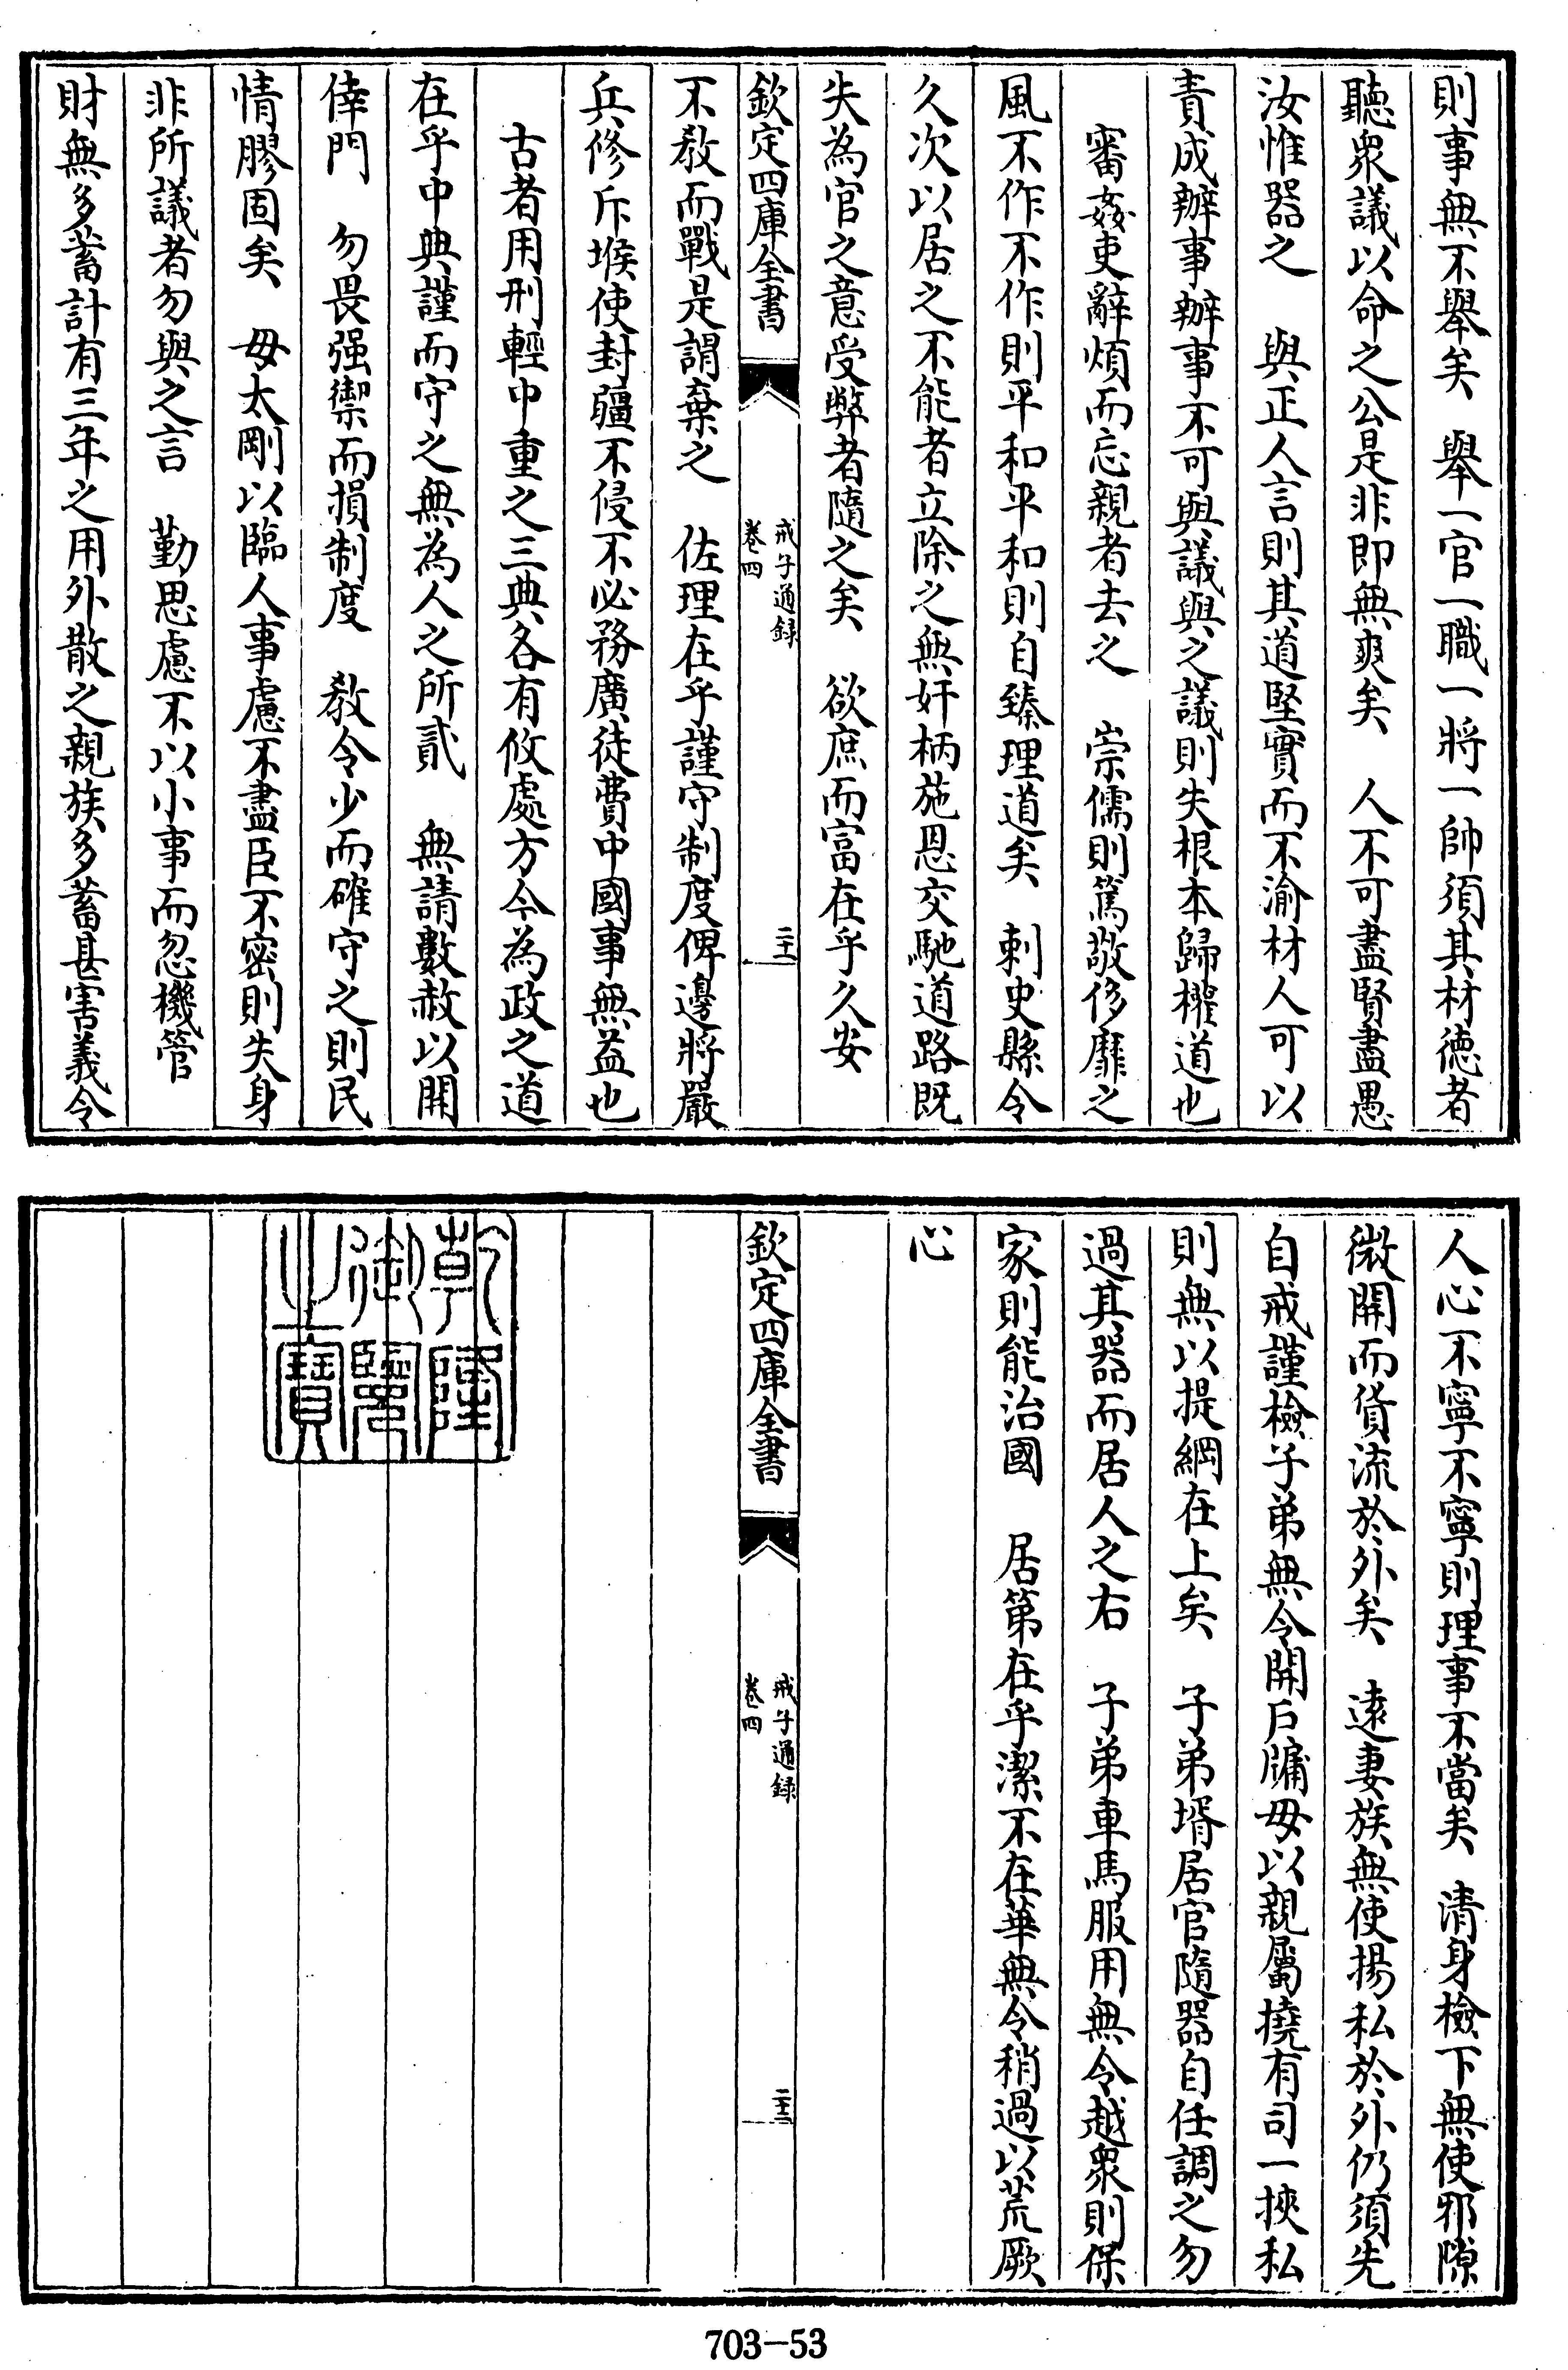 則事無不舉矣　舉一官一職一將一帥須其材徳者
聽衆議以命之公是非即無爽矣　人不可盡賢盡愚
汝惟器之　與正人言則其道堅實而不渝材人可以
責成辦事辦事不可與議與之議則失根本歸權道也
審姦吏辭煩而忘親者去之　崇儒則篤敬侈靡之
風不作不作則平和平和則自臻理道矣　刺史縣令
久次以居之不能者立除之無奸柄施恩交馳道路既
失為官之意受弊者隨之矣　欲庶而富在乎久安
欽定四庫全書
戒子通録
卷四
二十一
不教而戰是謂棄之　佐理在乎謹守制度俾邊將嚴
兵修斥堠使封疆不侵不必務廣徒費中國事無益也
古者用刑輕中重之三典各有攸處方今為政之道
在乎中典謹而守之無為人之所貳　無請數赦以開
倖門　勿畏强禦而損制度　教令少而確守之則民
情膠固矣　毋太剛以臨人事慮不盡臣不密則失身
非所議者勿與之言　勤思慮不以小事而忽機管
財無多蓄計有三年之用外散之親族多蓄甚害義令
人心不寧不寧則理事不當矣　清身檢下無使邪隙
微開而貨流於外矣　遠妻族無使揚私於外仍須先
自戒謹檢子弟無令開户牖毋以親屬撓有司一挾私
則無以提綱在上矣　子弟壻居官隨器自任調之勿
過其器而居人之右　子弟車馬服用無令越衆則保
家則能治國　居第在乎潔不在華無令稍過以荒厥
心
欽定四庫全書
戒子通録
卷四
二十二
乾隆
御覽
之寶
703-53